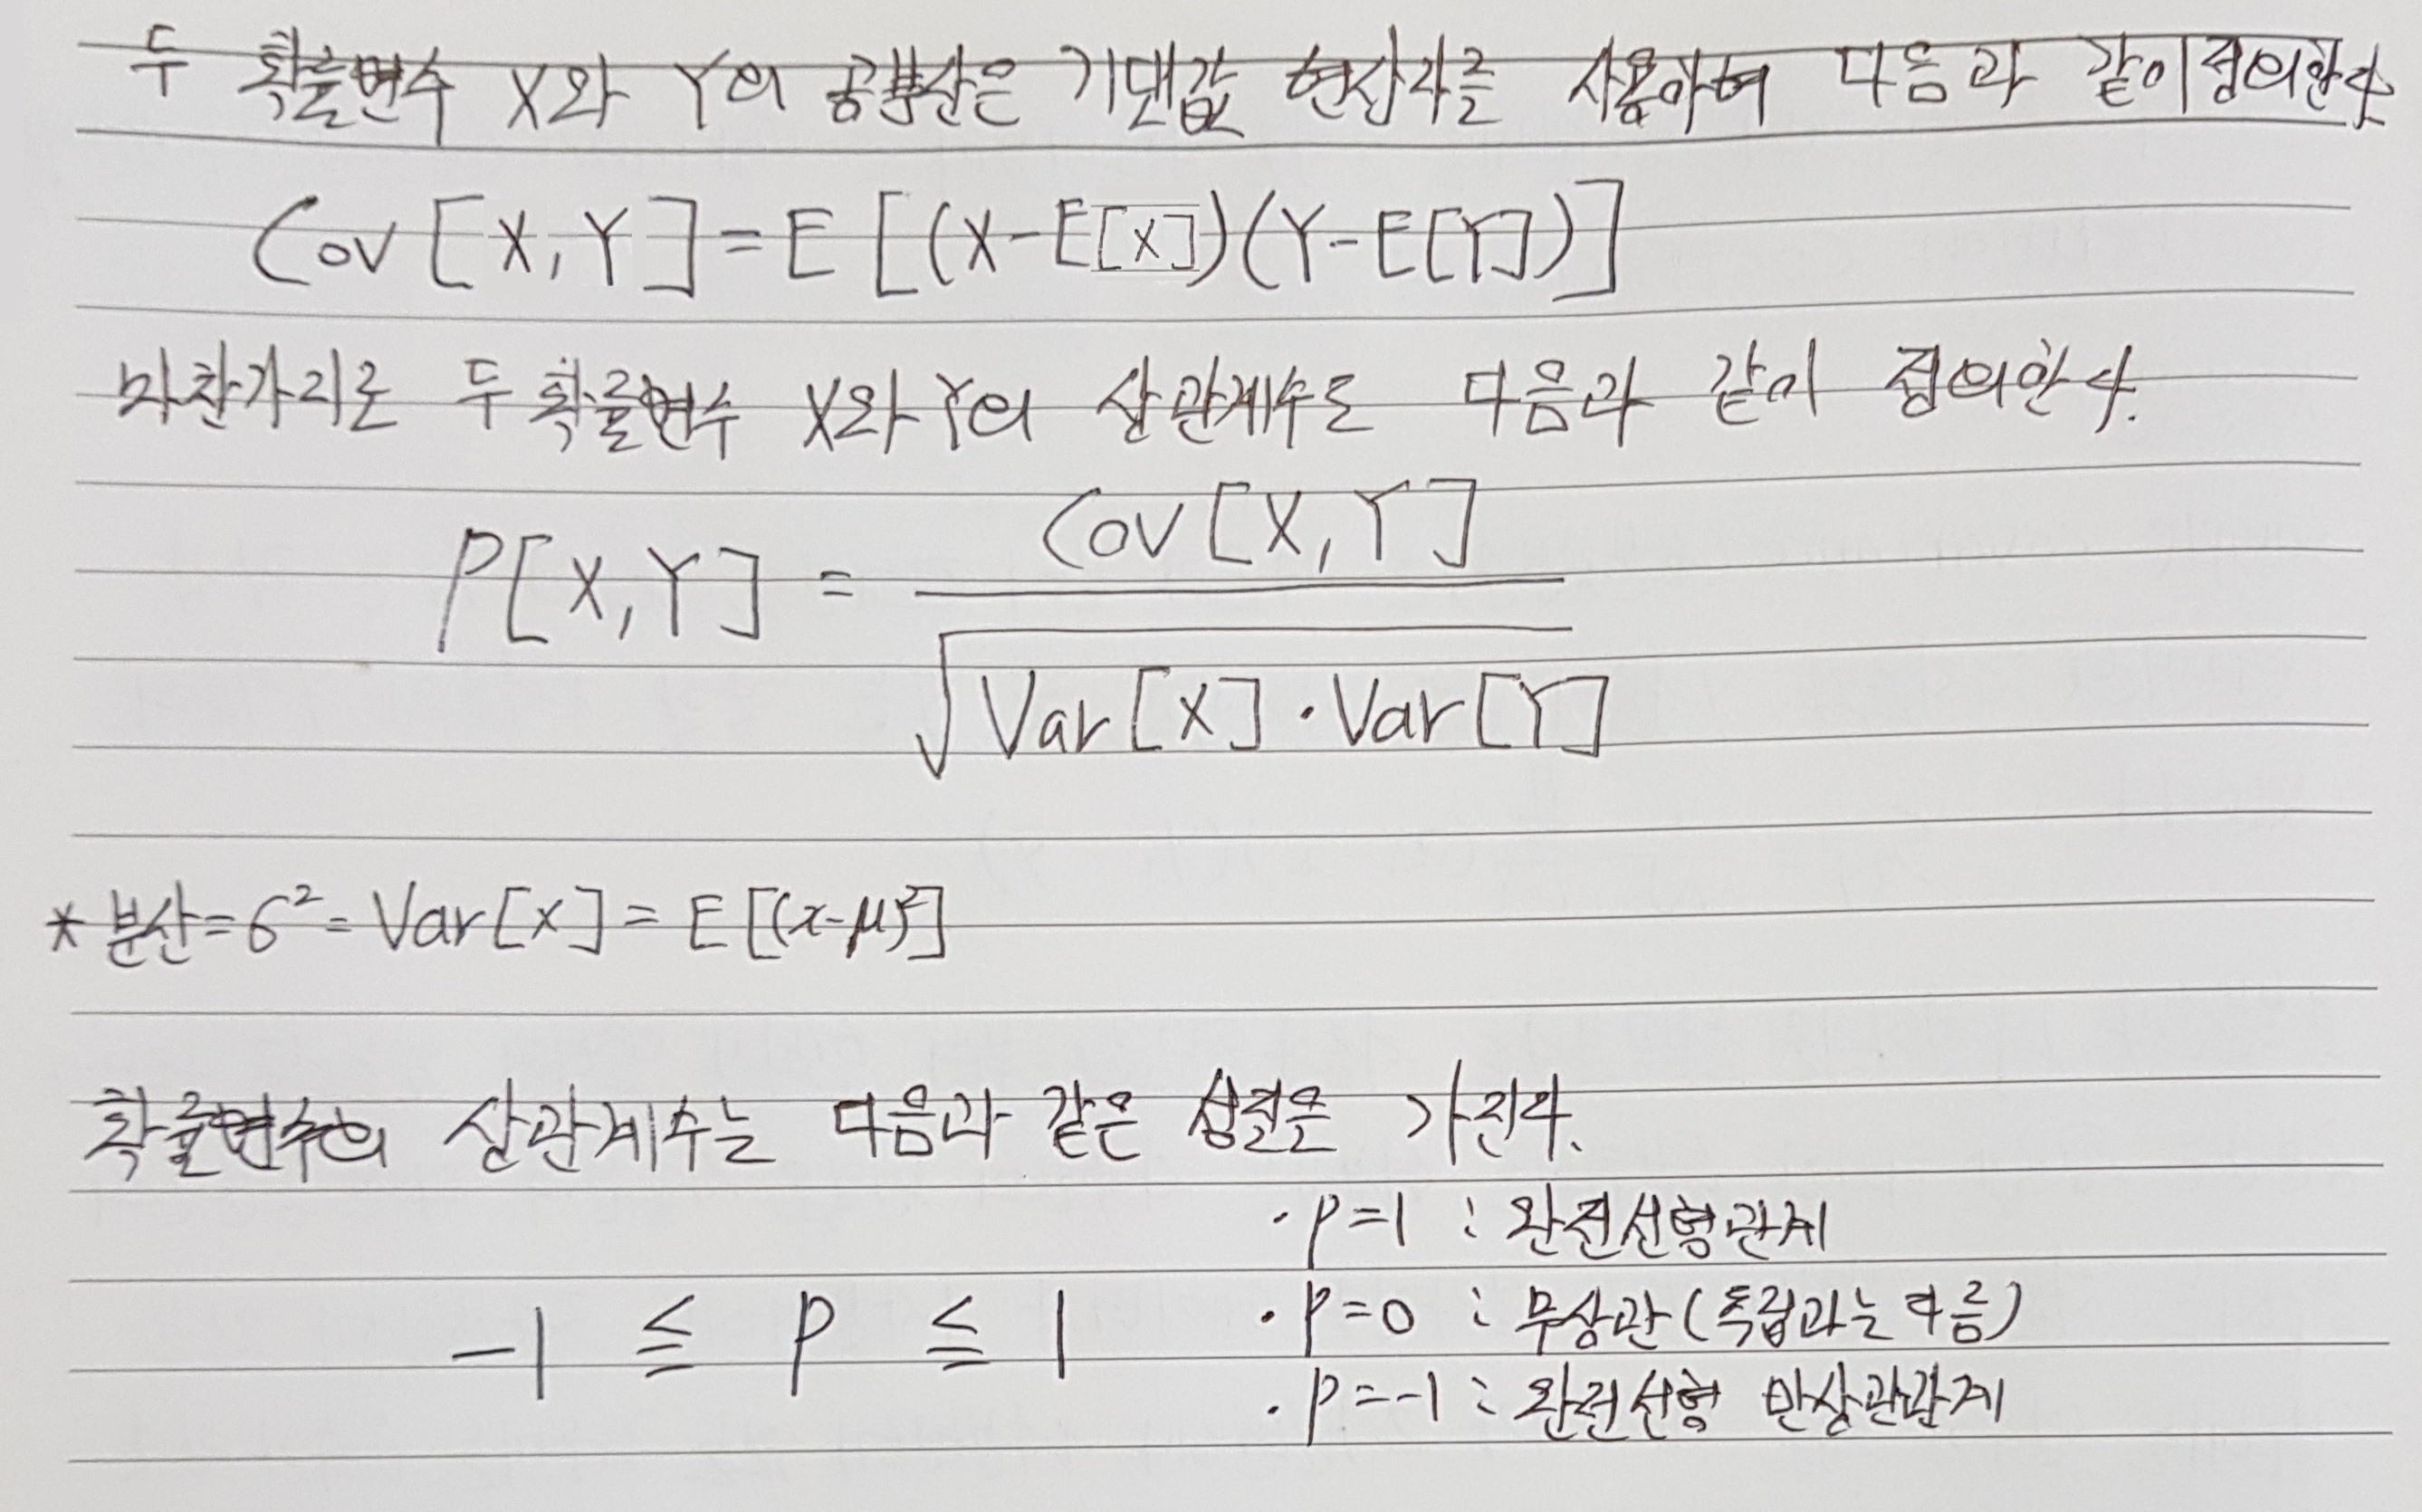 두 확률변수 X와 Y의 공분산은 기댓값 연산자를 사용하여 다음과 같이 정의한다
Cov[X,Y]=E[(X-E[X])(Y-E[Y])]
마찬가지로 두 확률변수 X와 Y의 상관계수도 다음과 같이 정의한다.
ρ[X,Y] = Cov[X,Y] / √Var[X]·Var[Y]
* 분산=σ²=Var[x]=E[(x-μ)²]
확률변수의 상관계수는 다음과 같은 성질을 가진다.
·ρ=1 : 완전선형관계
-1 ≦ ρ ≦ 1 ·ρ=0 : 무상관(독립과는 다름)
·ρ=-1 : 완전선형 반상관관계